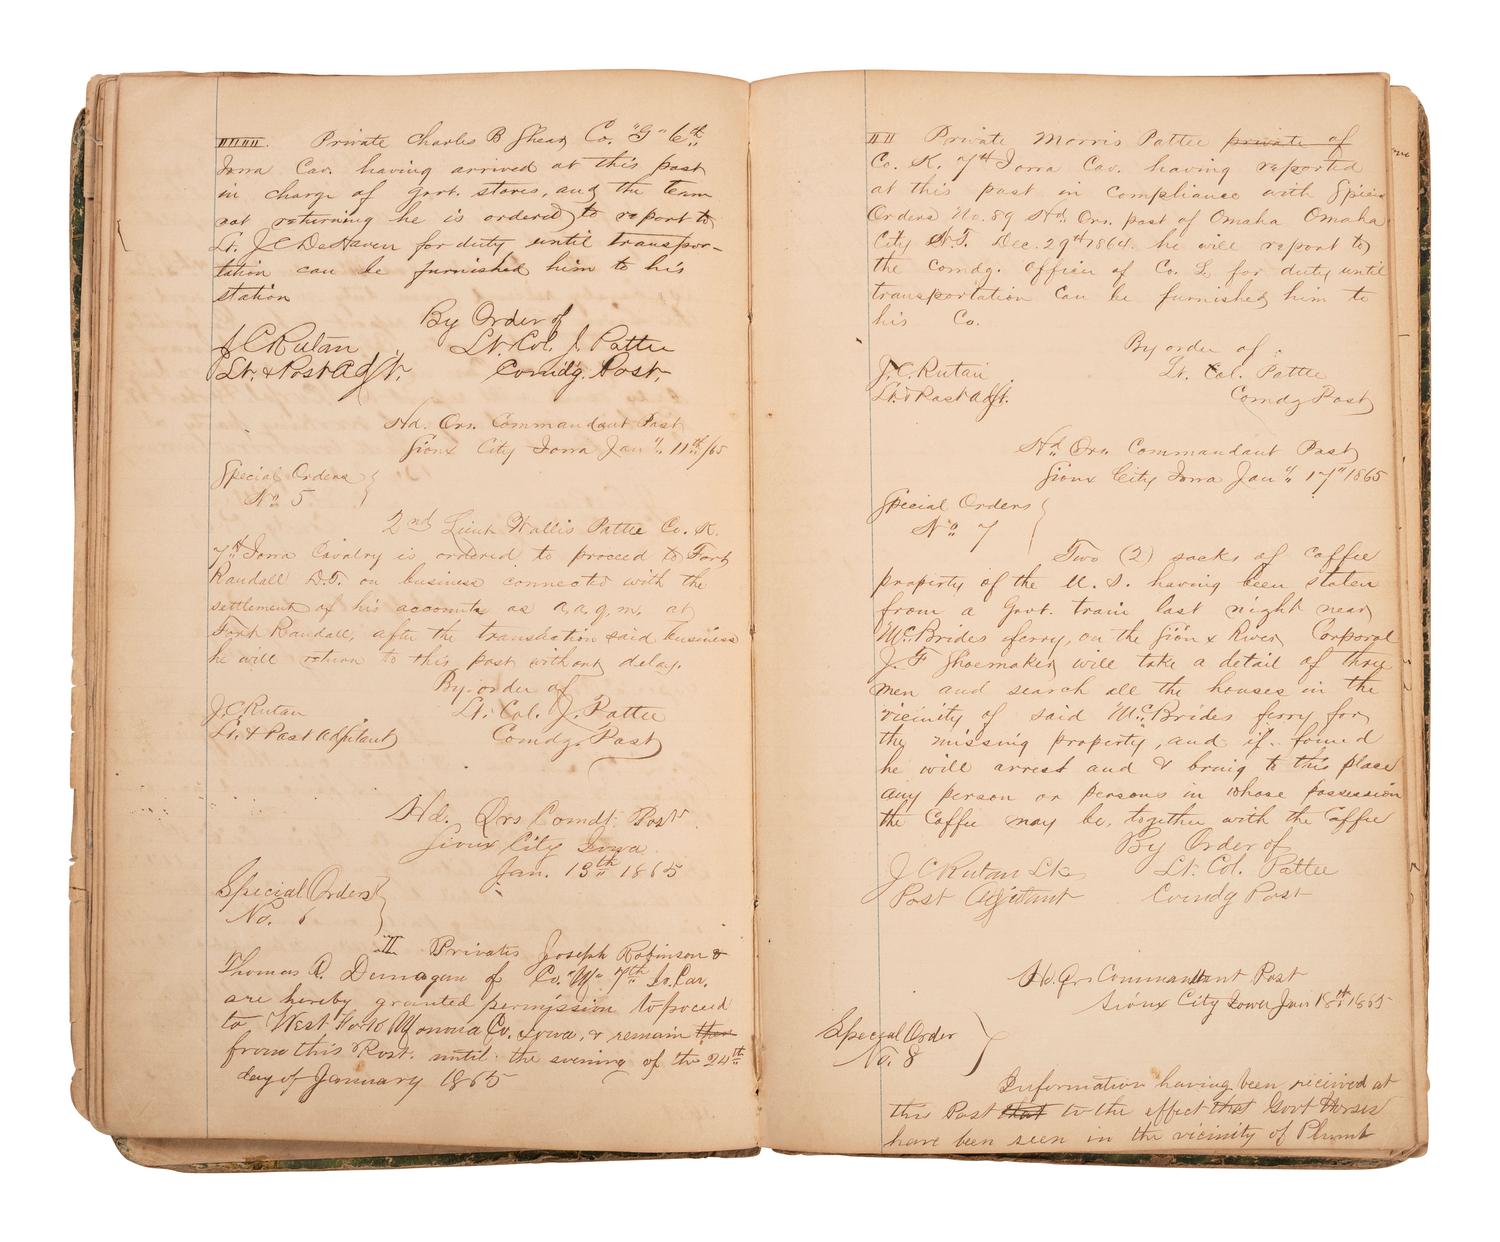 IIIII. Private Charles B Shear Co. "G" 6th
Iowa Cav. having arrived at this post
in charge of Govt. stores, and the team
not returning he is ordered to report to
Lt. J C DeHaven for duty until transpor-
tation can be furnished him to his
station
By Order of
J C Rutan Lt. Col. J. Pattee
Lt. & Post Adjt. Comdg. Post.
Hd. Qrs. Commandant Post
Sioux City Iowa Jany. 11th/65
Special Orders
No 5
2nd Lieut Wallis Pattee Co. K.
7th Iowa Cavalry is ordered to proceed to Fort
Randall D.T. on business connected with the
settlement of his accounts as a.a.q.m. at
Fort Randall, after the transaction said business
he will return to this post without delay.
By order of
J. C. Rutan Lt. Col. J. Pattee
Lt. & Post Adjutant Comdg. Post
Hd. Qrs Comdt. Post
Sioux City Iowa
Jan. 13th 1865
Special Orders
No. 6
II Privates Joseph Robinson &
Thomas R. Dunagan of Co. "M" 7th Io. Cav.
are hereby granted permission to proceed
to, West Fork Monona Co. Iowa, & remain
from this Post. until the evening of the 24th
day of January 1865
III Private Morris Pattee private of
Co. K. 7th Iowa Cav. having reported
at this post in compliance with Special
Orders No. 89 Hd. Qrs. post of Omaha Omaha
City N.T. Dec. 29th 1864. he will report to
the Comdg. Officer of Co. L for duty until
transportation can be furnished him to
his Co.
By order of.
J. C. Rutan Lt. Col. Pattee
Lt. & Post Adjt. Comdg Post
Hd Qrs Commandant Post
Sioux City Iowa Jany 17" 1865
Special Orders
No 7
Two (2) sacks of coffee
property of the U. S. having been stolen
from a Govt. train last night near
McBrides ferry, on the Sioux River Corporal
J. F Shoemaker will take a detail of three
men and search all the houses in the
vicinity of said McBrides ferry for
the missing property, and if found
he will arrest and & bring to this place
any person or persons in whose possession
the Coffee may be, together with the Coffee
By Order of
J C Rutan Lt Lt. Col. Pattee
Post Adjutant Comdg Post
Hd. Qr. Commandant Post
Sioux City Iowa Jan 18th 1865
Special Order
No. 8
Information having been received at
this Post that to the effect that Govt Horses
have been seen in the vicinity of Plumb